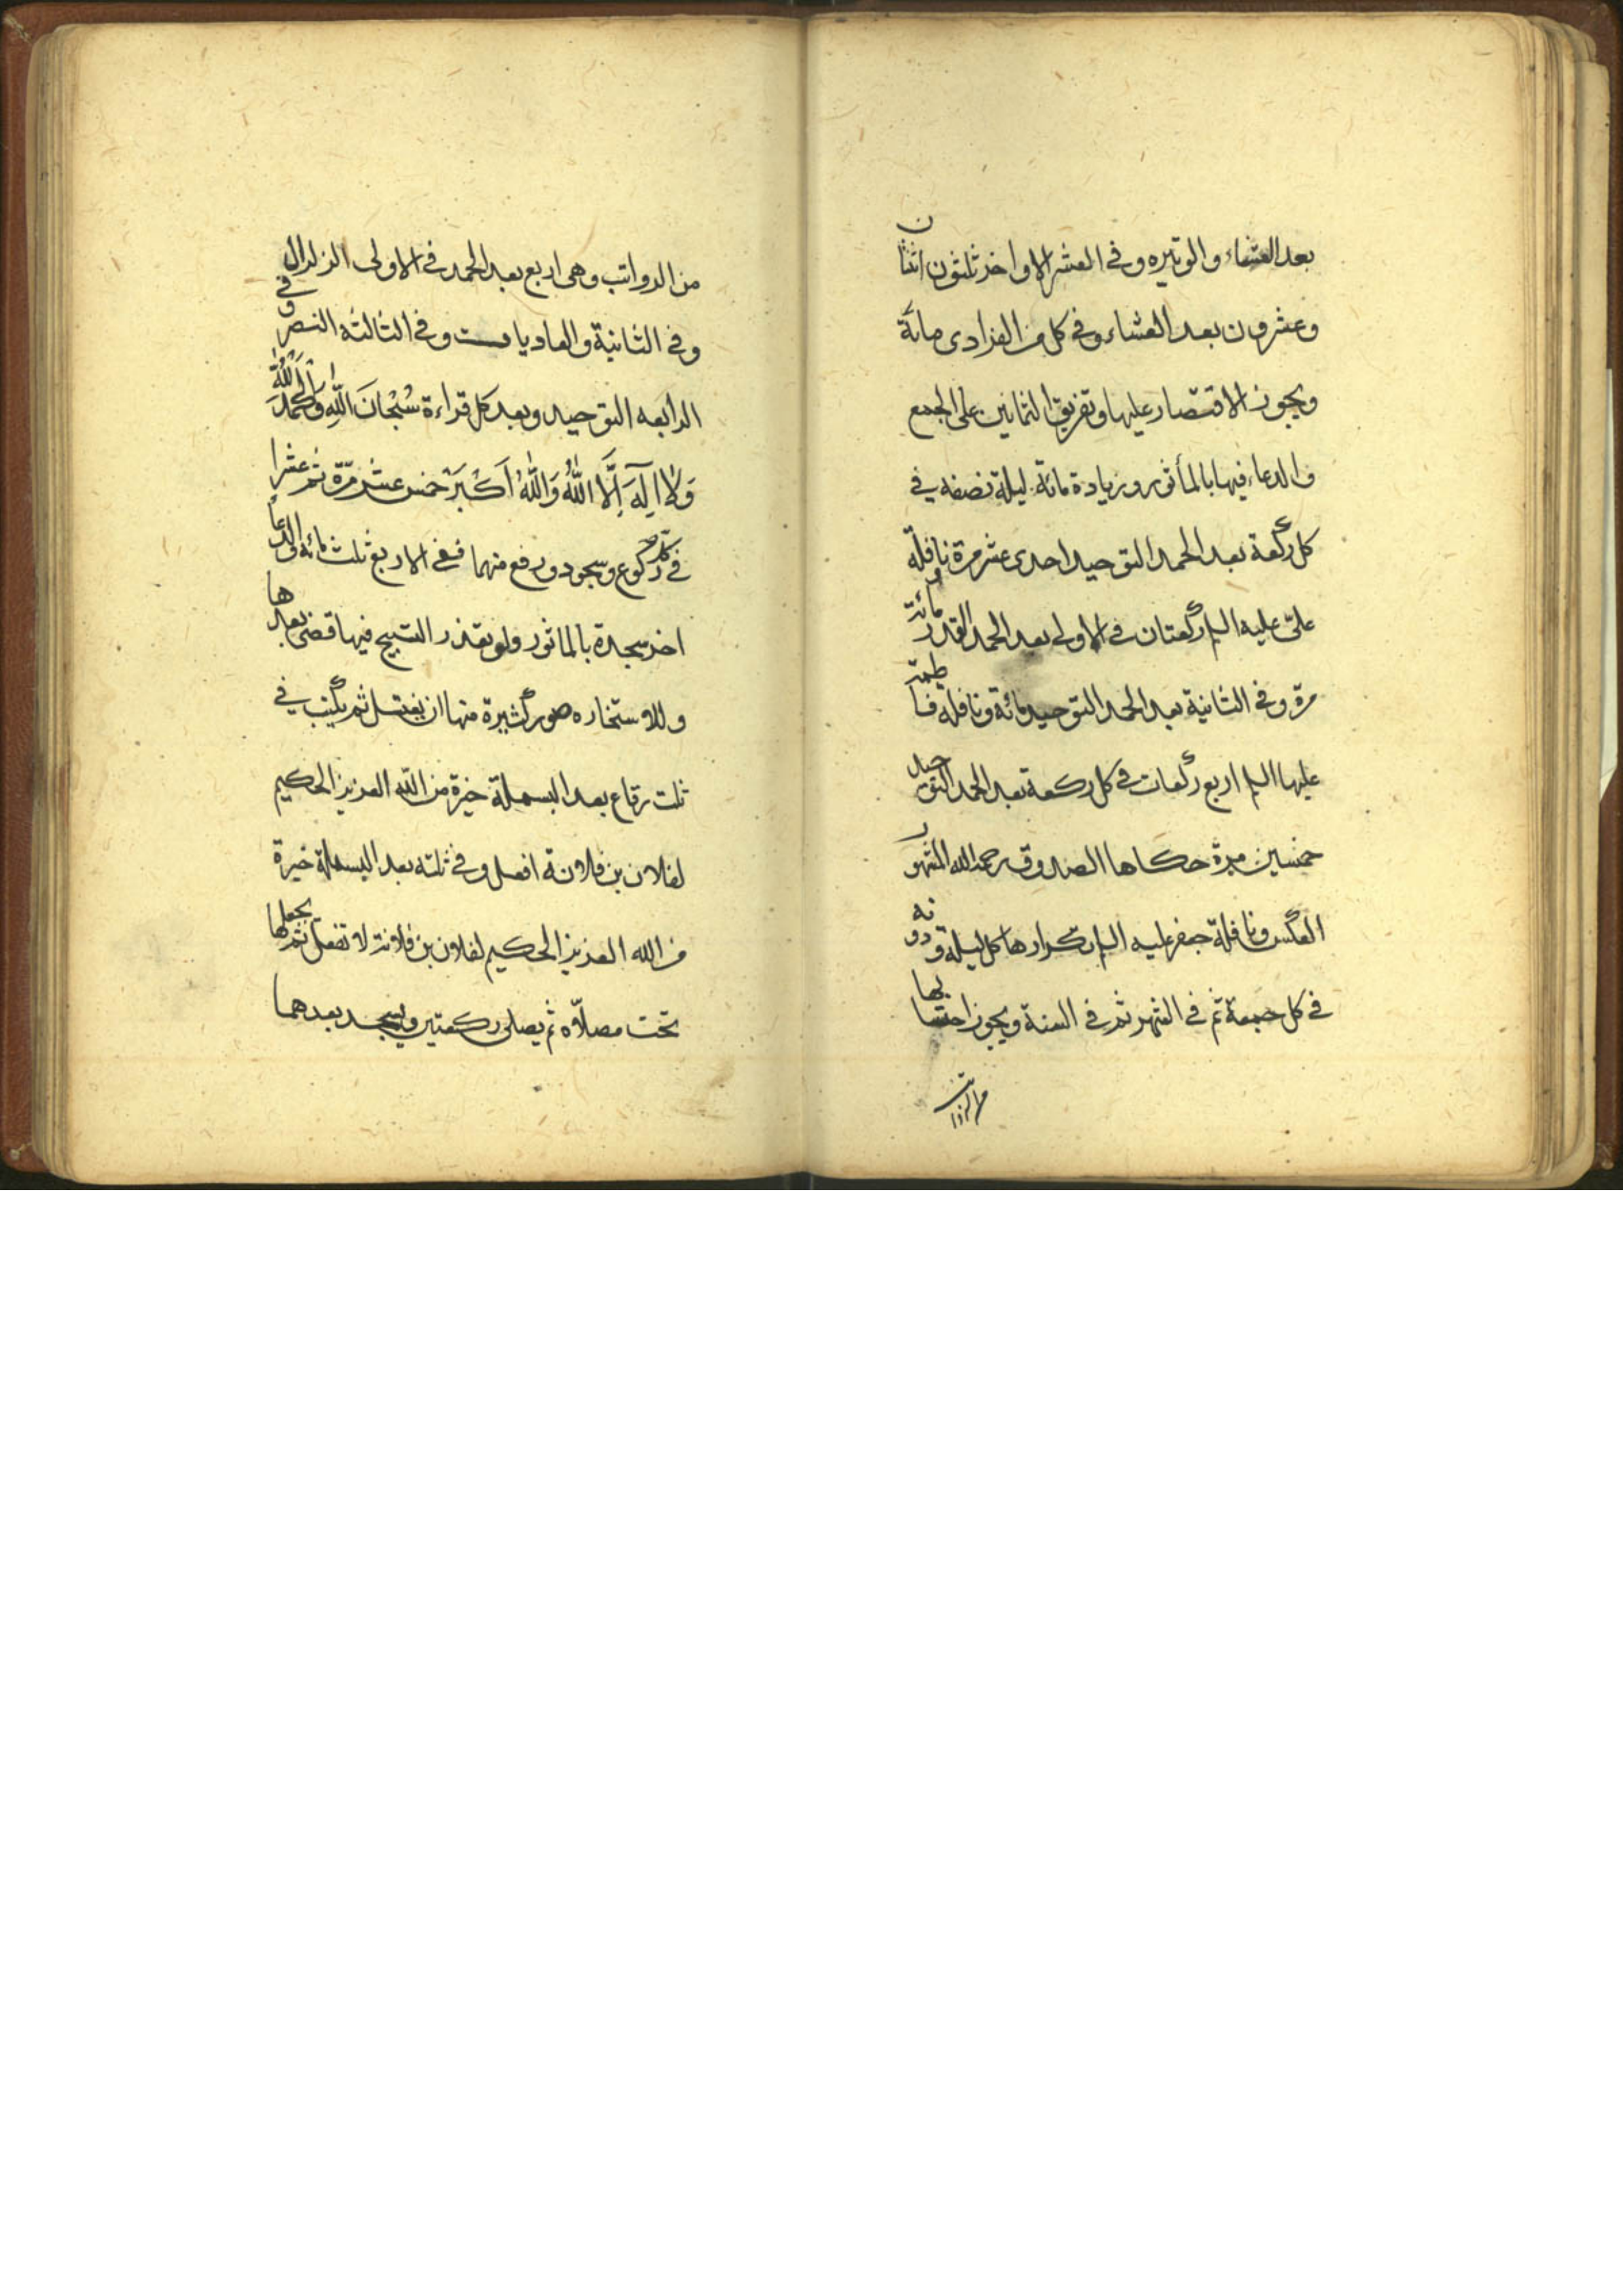 بعد العشاء والوتيره وفى العشر الاواخر ثلثون اثنتان
وعشرون بعد العشاء وفى كل من الفرادى مائة
ويجوز الاقتصار عليها وتفريق الثمانين على الجمع
والدعاء فيها بالمأثور وزيادة مائة ليلة نصفه في
كل ركعة بعد الحمد التوحيد احدى عشر مرة ونافلة
على عليه السلم ركعتان فى الاولى بعد الحمد القدر مائة
مرة وفى الثانية بعد الحمد التوحيد مائة ونافلة فاطمة
عليها السلم اربع ركعات في كل ركعة بعد الحمد التوحيد
خمسين مرة حكاها الصدوق رحمه الله والمشهور
العكس ونافلة جعفر عليه السلم تكرارها كل ليلة ودونه
في كل جمعة ثم في الشهر ثم في السنة ويجوز احتسابها
من الرواتب
من الرواتب وهى اربع بعد الحمد فى الاولى الزلزال
وفى الثانية والعاديات وفى الثالثه النصر وفي
الرابعه التوحيد وبعد كل قراءة سُبْحَانَ اللّٰهِ وَالْحَمْدُ لِلّٰهِ
وَلَا اِلَهَ اِلَّا اللّٰهُ وَاللّٰهُ اَكْبَرُ خمس عشر مرّة ثم عشرا
في كل ركوع وسجود ورفع منهما ففى الاربع ثلث مائه والدعا
اخر سجدة بالماثور ولو تعذر التسبيح فيها قضى بعدها
وللاستخاره صور كثيرة منها ان يغتسل ثم يكتب في
ثلث رقاع بعد البسملة خيرة من اللّه العزيز الحكيم
لفلان بن فلانة افعل وفى ثلثه بعد البسملة خيرة
من الله العزيز الحكيم لفلان بن فلانة لا تفعل ثم يجعلها
تحت مصلّاه ثم يصلى ركعتين ويسجد بعدهما